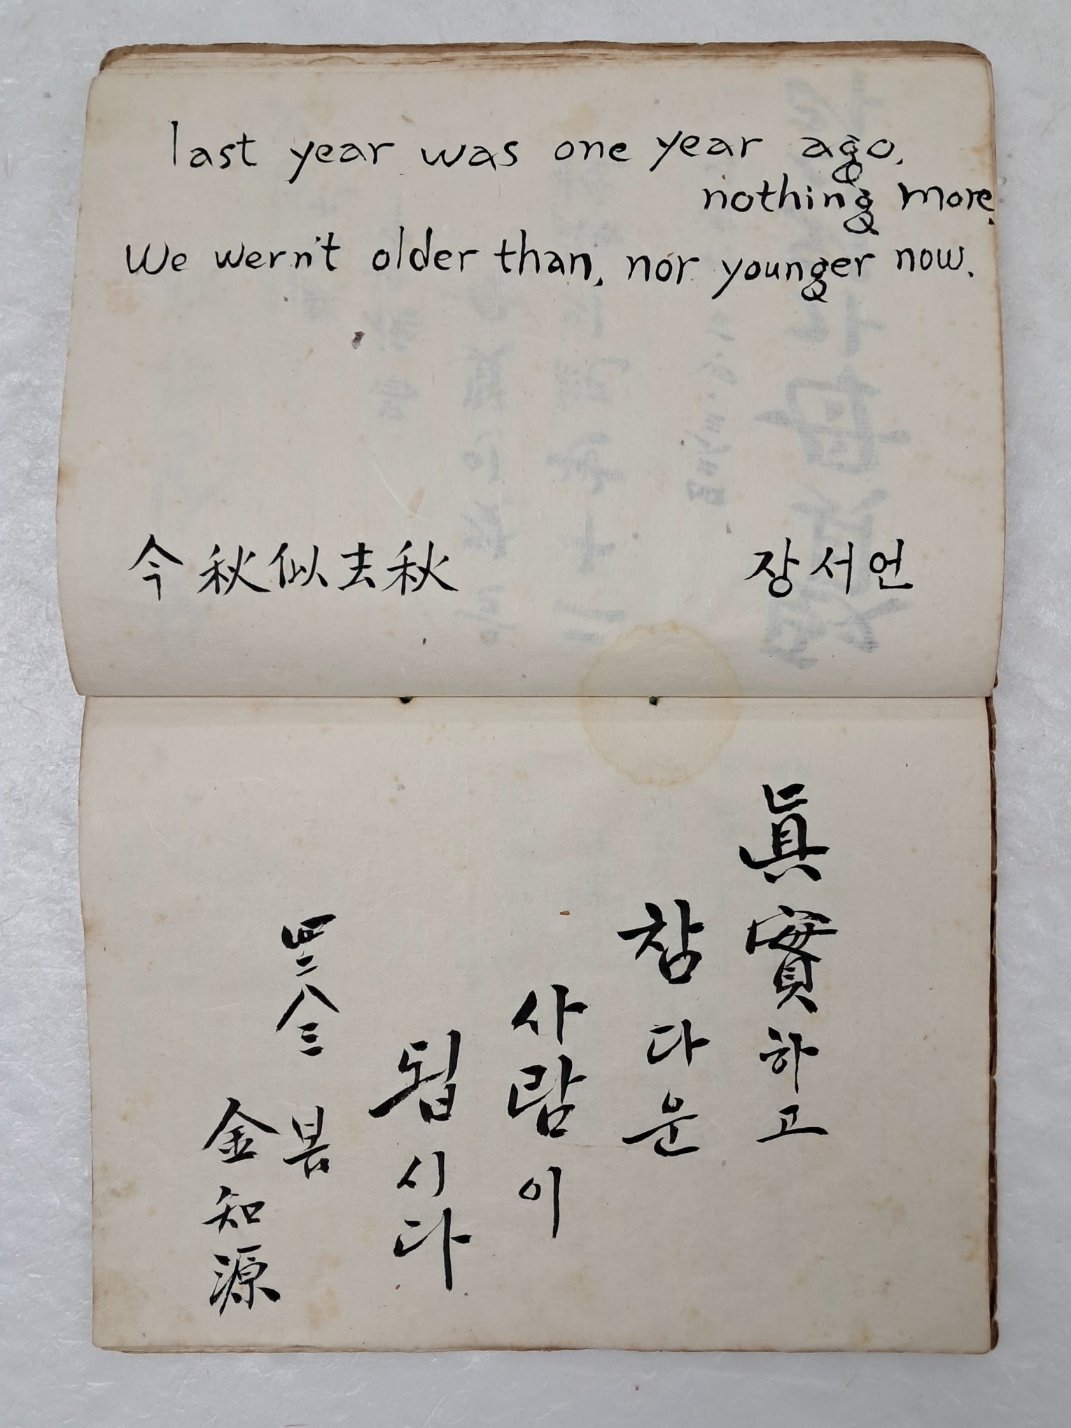 last year was one year ago,
nothing more.
We wern't older than, nor younger now.
今秋似去秋
장서언
眞實하고
참다운
사람이
됩시다
四二八三
金知源